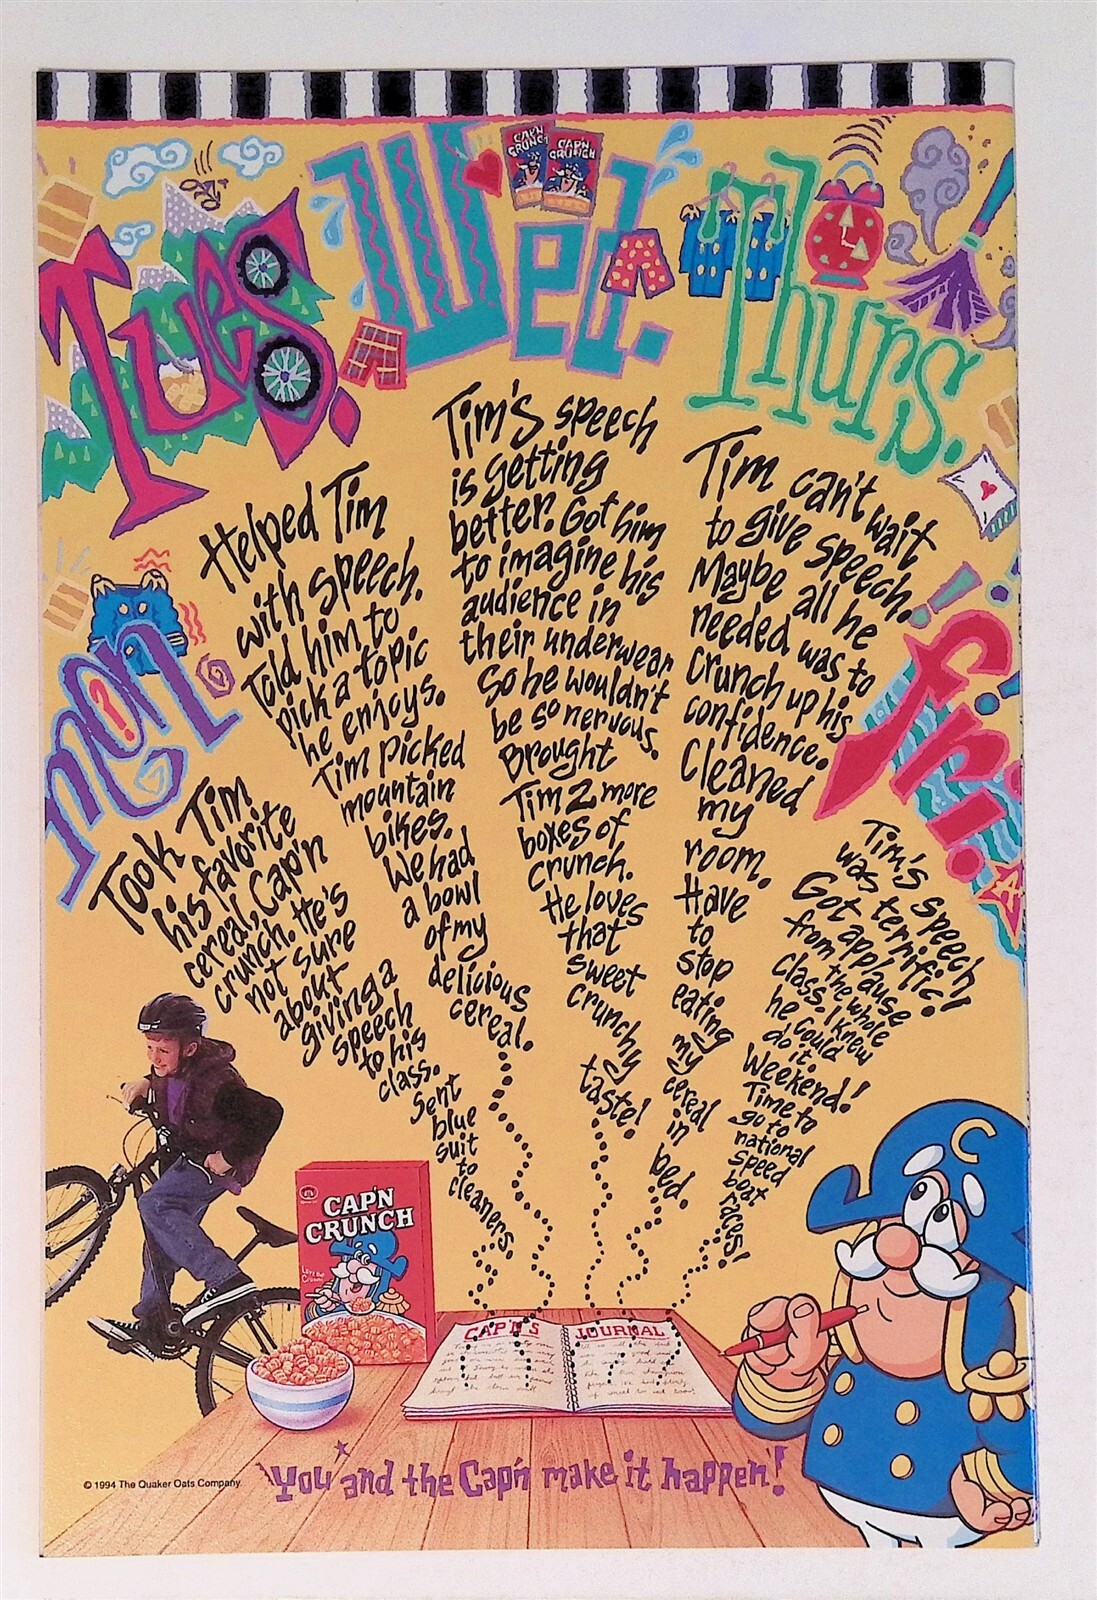 Mon.
Took Tim
his favorite
cereal, Cap'n
Crunch. He's
not sure
about
giving a
speech
to his
class.
Sent
blue
suit
to
cleaners.
Tues.
Helped Tim
with speech.
Told him to
pick a topic
he enjoys.
Tim picked
mountain
bikes.
We had
a bowl
of my
delicious
cereal.
Wed.
CAP'N
CRUNCH
CAP'N
CRUNCH
Tim's speech
is getting
better. Got him
to imagine his
audience in
their underwear
So he wouldn't
be so nervous.
Brought
Tim 2 more
boxes of
crunch.
He loves
that
sweet
crunchy
taste!
Thurs.
Tim can't wait
to give speech.
Maybe all he
needed was to
crunch up his
confidence.
Cleaned
my
room.
Have
to
stop
eating
my
cereal
in
bed.
Fri.
Tim's speech
was terrific!
Got applause
from the whole
class. I knew
he could
do it.
Weekend!
Time to
go to
national
speed
boat
races!
CAP'N
CRUNCH
CAP'N'S JOURNAL
C
© 1994 The Quaker Oats Company.
You and the Cap'n make it happen!